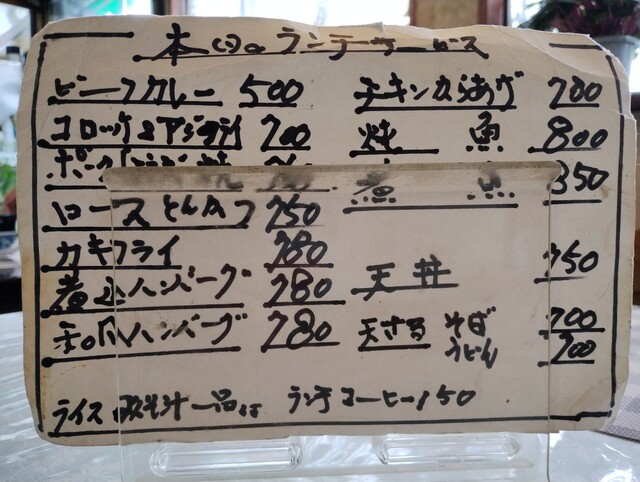 本日のランチサービス
ビーフカレー 500
コロッケ&アジフライ 700
ポーク
ロースとんかつ 750
カキフライ 780
煮込ハンバーグ 780
和風ハンバーグ 780
チキンからあげ 700
焼魚 800
煮魚 850
天丼 750
天ざる そば 700
うどん 700
ライス 味噌汁 一品付 ランチコーヒー150